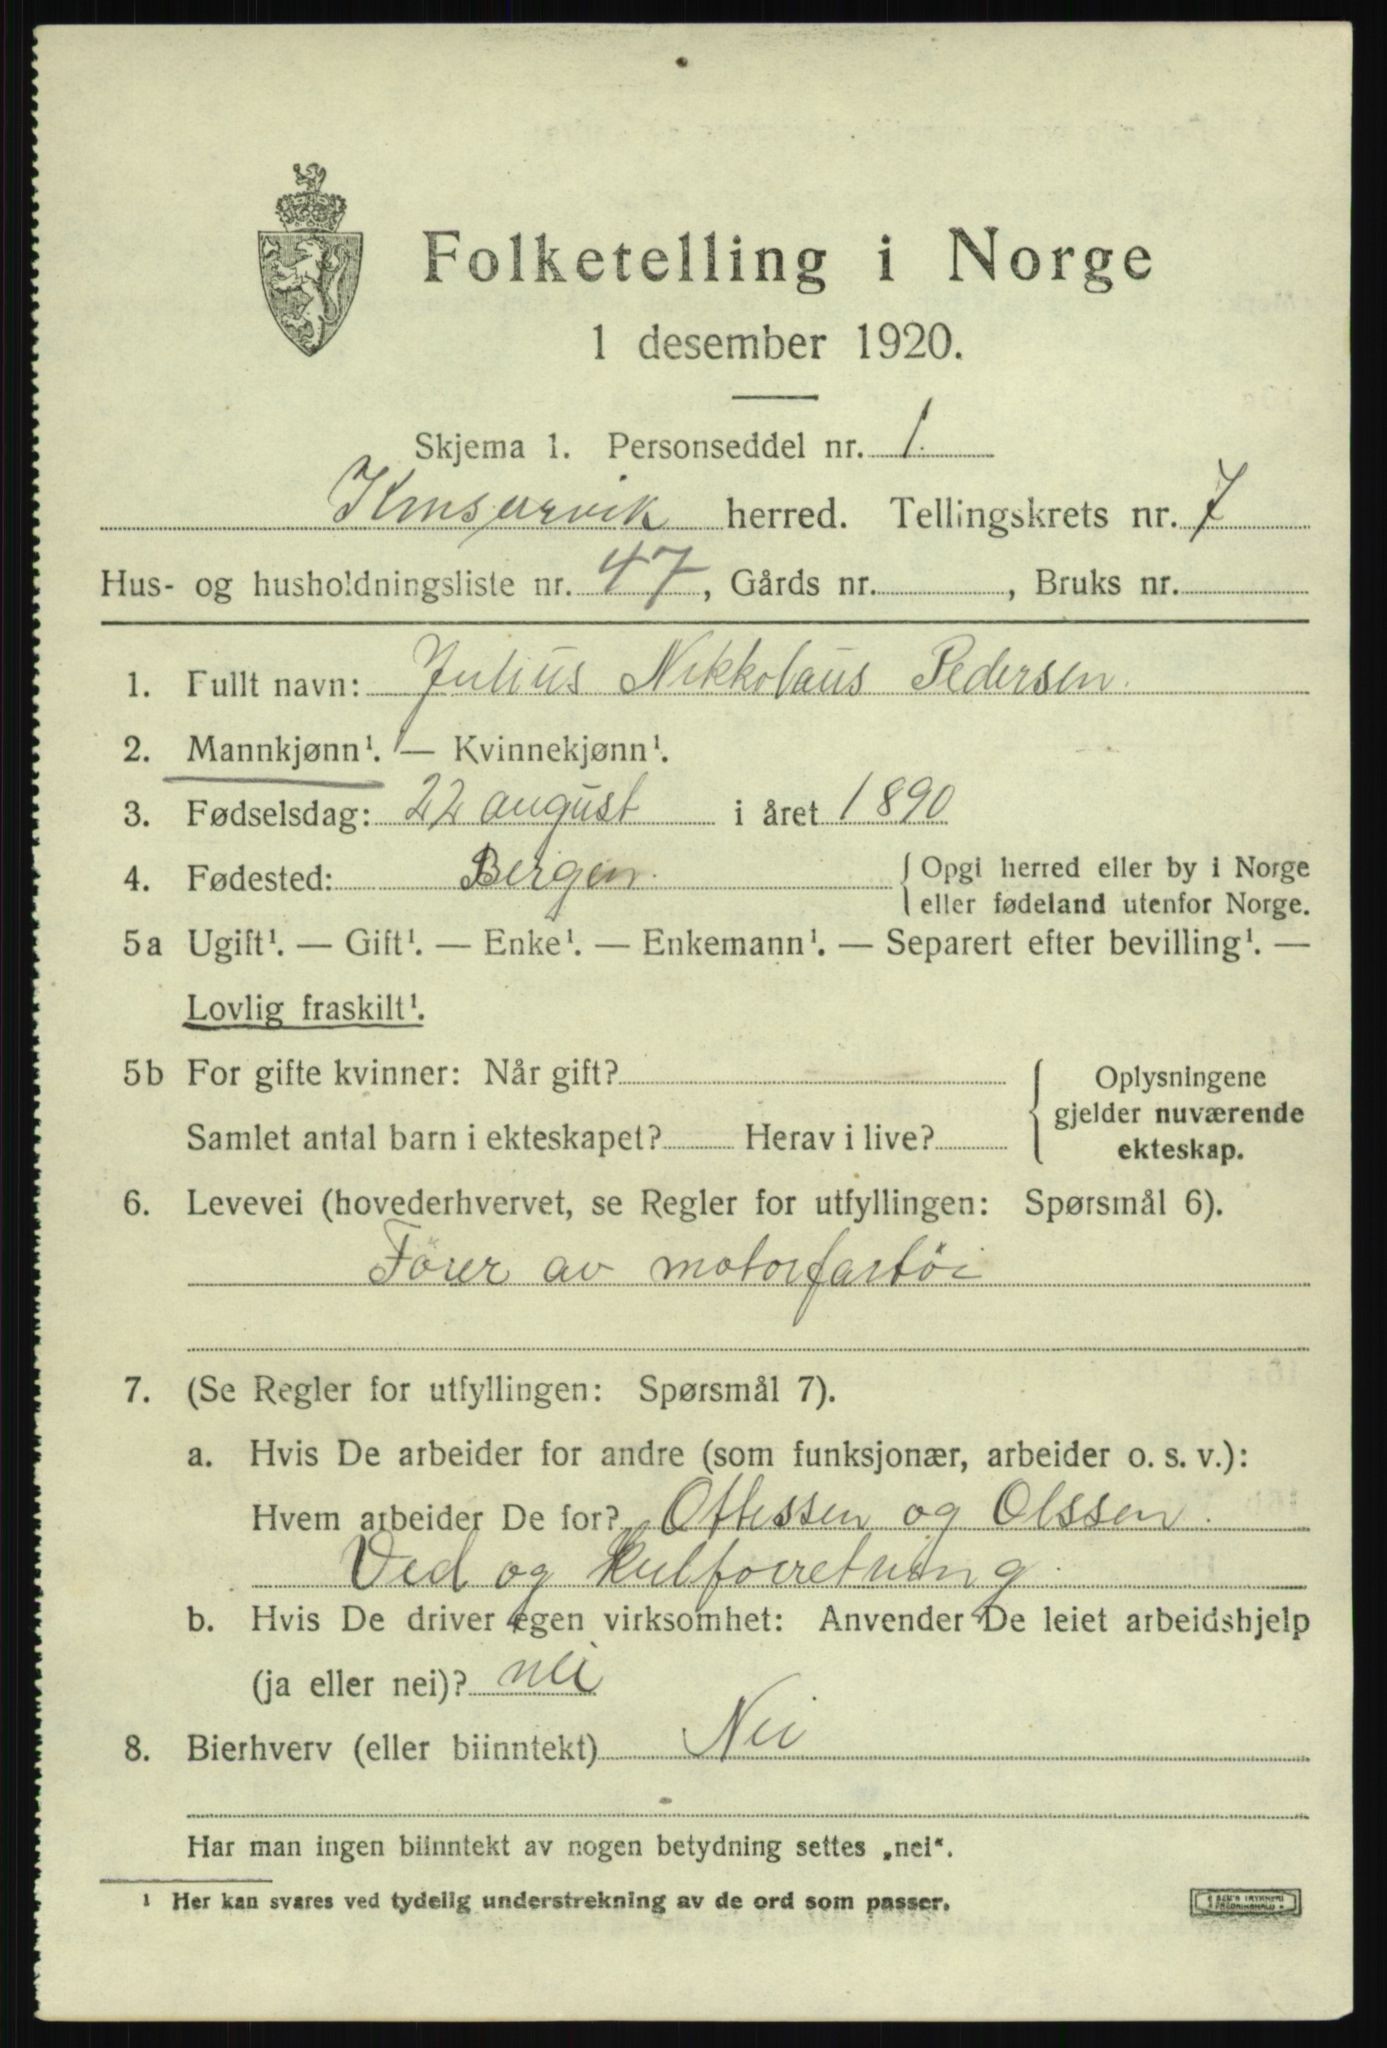 Folketelling i Norge
1 desember 1920.
Skjema 1. Personseddel nr. 1.
Kinservik herred. Tellingskrets nr. 7
Hus- og husholdningsliste nr. 47, Gårds nr. , Bruks nr.
1. Fullt navn: Julius Nikkolaus Pedersen.
2. Mannkjønn¹. — Kvinnekjønn¹.
3. Fødselsdag: 22 august i året 1890
4. Fødested: Bergen. Opgi herred eller by i Norge
eller fødeland utenfor Norge.
5a Ugift¹. — Gift¹. — Enke¹. — Enkemann¹. — Separert efter bevilling¹. —
Lovlig fraskilt¹.
5b For gifte kvinner: Når gift? Oplysningene
gjelder nuværende
Samlet antal barn i ekteskapet? Herav i live?
ekteskap.
6. Levevei (hovederhvervet, se Regler for utfyllingen: Spørsmål 6).
Förer av motorfartöi
7. (Se Regler for utfyllingen: Spørsmål 7).
a. Hvis De arbeider for andre (som funksjonær, arbeider o. s. v.):
Hvem arbeider De for? og Olssen.
Ved og kulforretning.
b. Hvis De driver egen virksomhet: Anvender De leiet arbeidshjelp
(ja eller nei)? nei
8. Bierhverv (eller biinntekt) Nei
Har man ingen biinntekt av nogen betydning settes „nei“.
¹ Her kan svares ved tydelig understrekning av de ord som passer.